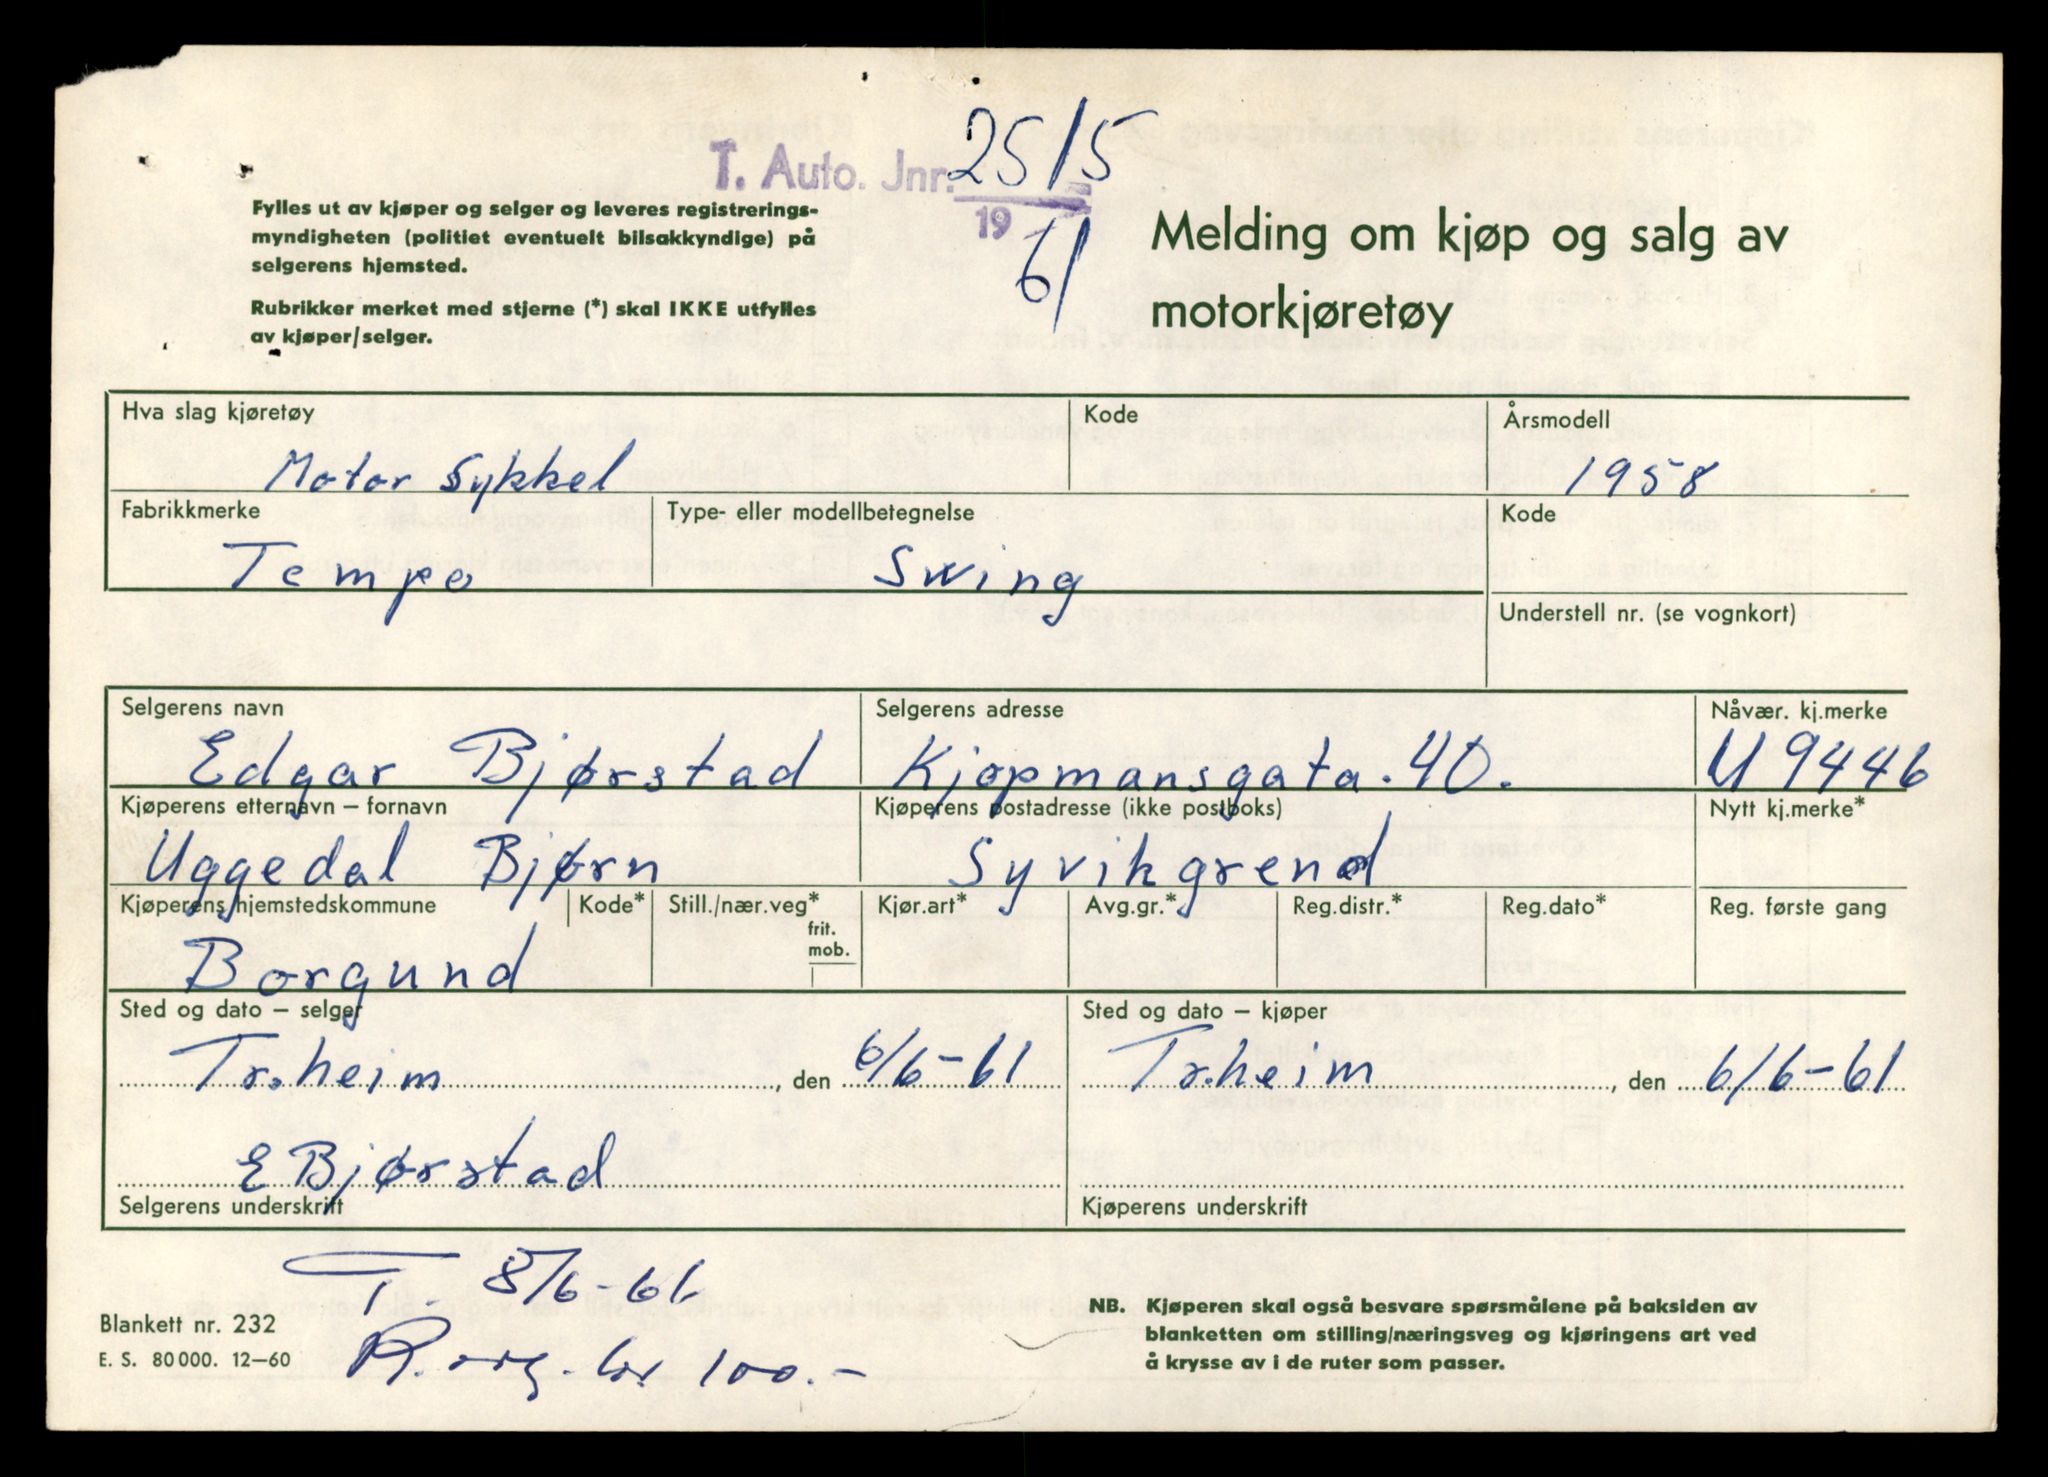 T. Auto. Jnr. 2515
19 61
Fylles ut av kjøper og selger og leveres registrerings-
myndigheten (politiet eventuelt bilsakkyndige) på
selgerens hjemsted.
Rubrikker merket med stjerne (*) skal IKKE utfylles
av kjøper/selger.
Melding om kjøp og salg av
motorkjøretøy
Hva slag kjøretøy
Motor Sykkel
Kode
Årsmodell
1958
Fabrikkmerke
Tempo
Type- eller modellbetegnelse
Swing
Kode
Understell nr. (se vognkort)
Selgerens navn
Edgar Bjørstad
Selgerens adresse
Kjøpmansgata. 40.
Nåvær. kj.merke
U 9446
Kjøperens etternavn – fornavn
Uggedal Bjørn
Kjøperens postadresse (ikke postboks)
Syvikgrend
Nytt kj.merke*
Kjøperens hjemstedskommune
Borgund
Kode*
Still./nær.veg*
frit.
mob.
Kjør.art*
Avg.gr.*
Reg.distr.*
Reg.dato*
Reg. første gang
Sted og dato – selger
Tr.heim, den 6/6-61
Sted og dato – kjøper
Tr.heim, den 6/6-61
E Bjørstad
Selgerens underskrift
Kjøperens underskrift
T. 8/6-61.
R. org. kr 100.-
Blankett nr. 232
E. S. 80000. 12–60
NB. Kjøperen skal også besvare spørsmålene på baksiden av
blanketten om stilling/næringsveg og kjøringens art ved
å krysse av i de ruter som passer.